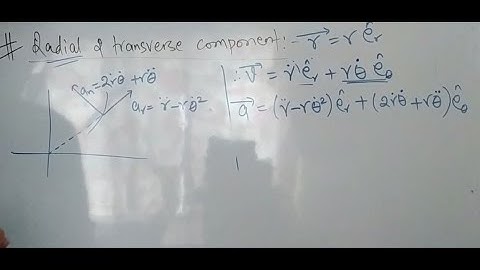 # Radial & transverse component:- \vec{r} = r ê_r
a_n = 2ṙθ̇ + rθ̈
a_r = r̈ - rθ̇²
∴ \vec{v} = ṙ ê_r + rθ̇ ê_θ
\vec{a} = (r̈ - rθ̇²) ê_r + (2ṙθ̇ + rθ̈) ê_θ